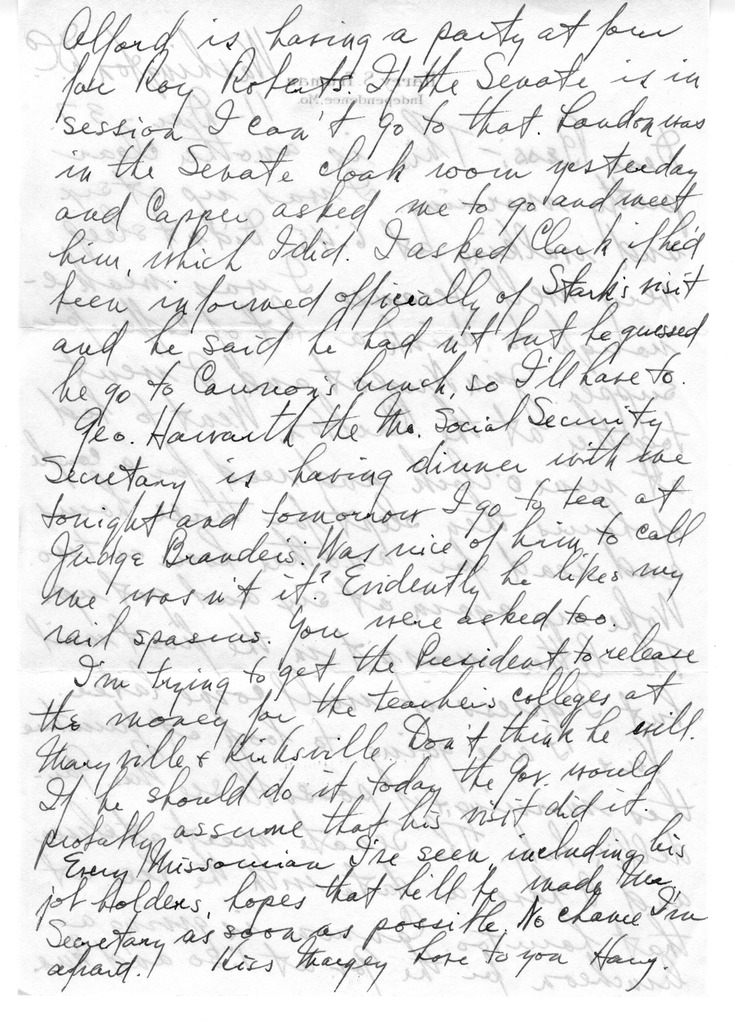 Alford is having a party at four
for Roy Roberts. If the Senate is in
session I can't go to that. Landon was
in the Senate cloak room yesterday
and Capper asked me to go and meet
him, which I did. I asked Clark if he'd
been informed officially of Stark's visit
and he said he had n't but he guessed
he go to Cannon's lunch, so I'll have to.
Geo. Haworth the Mo. Social Security
Secretary is having dinner with me
tonight and tomorrow I go to tea at
Judge Brandeis. Was nice of him to call
me was n't it? Evidently he likes my
rail spasms. You were asked too.
I'm trying to get the President to release
the money for the teachers colleges at
Maryville & Kirksville. Don't think he will.
If he should do it today the Gov. would
probably assume that his visit did it.
Every Missourian I've seen, including his
job holders, hopes that he'll be made
Secretary as soon as possible. No chance I'm
afraid. Kiss Margey love to you Harry.
Harry S. Truman
Independence, Mo.